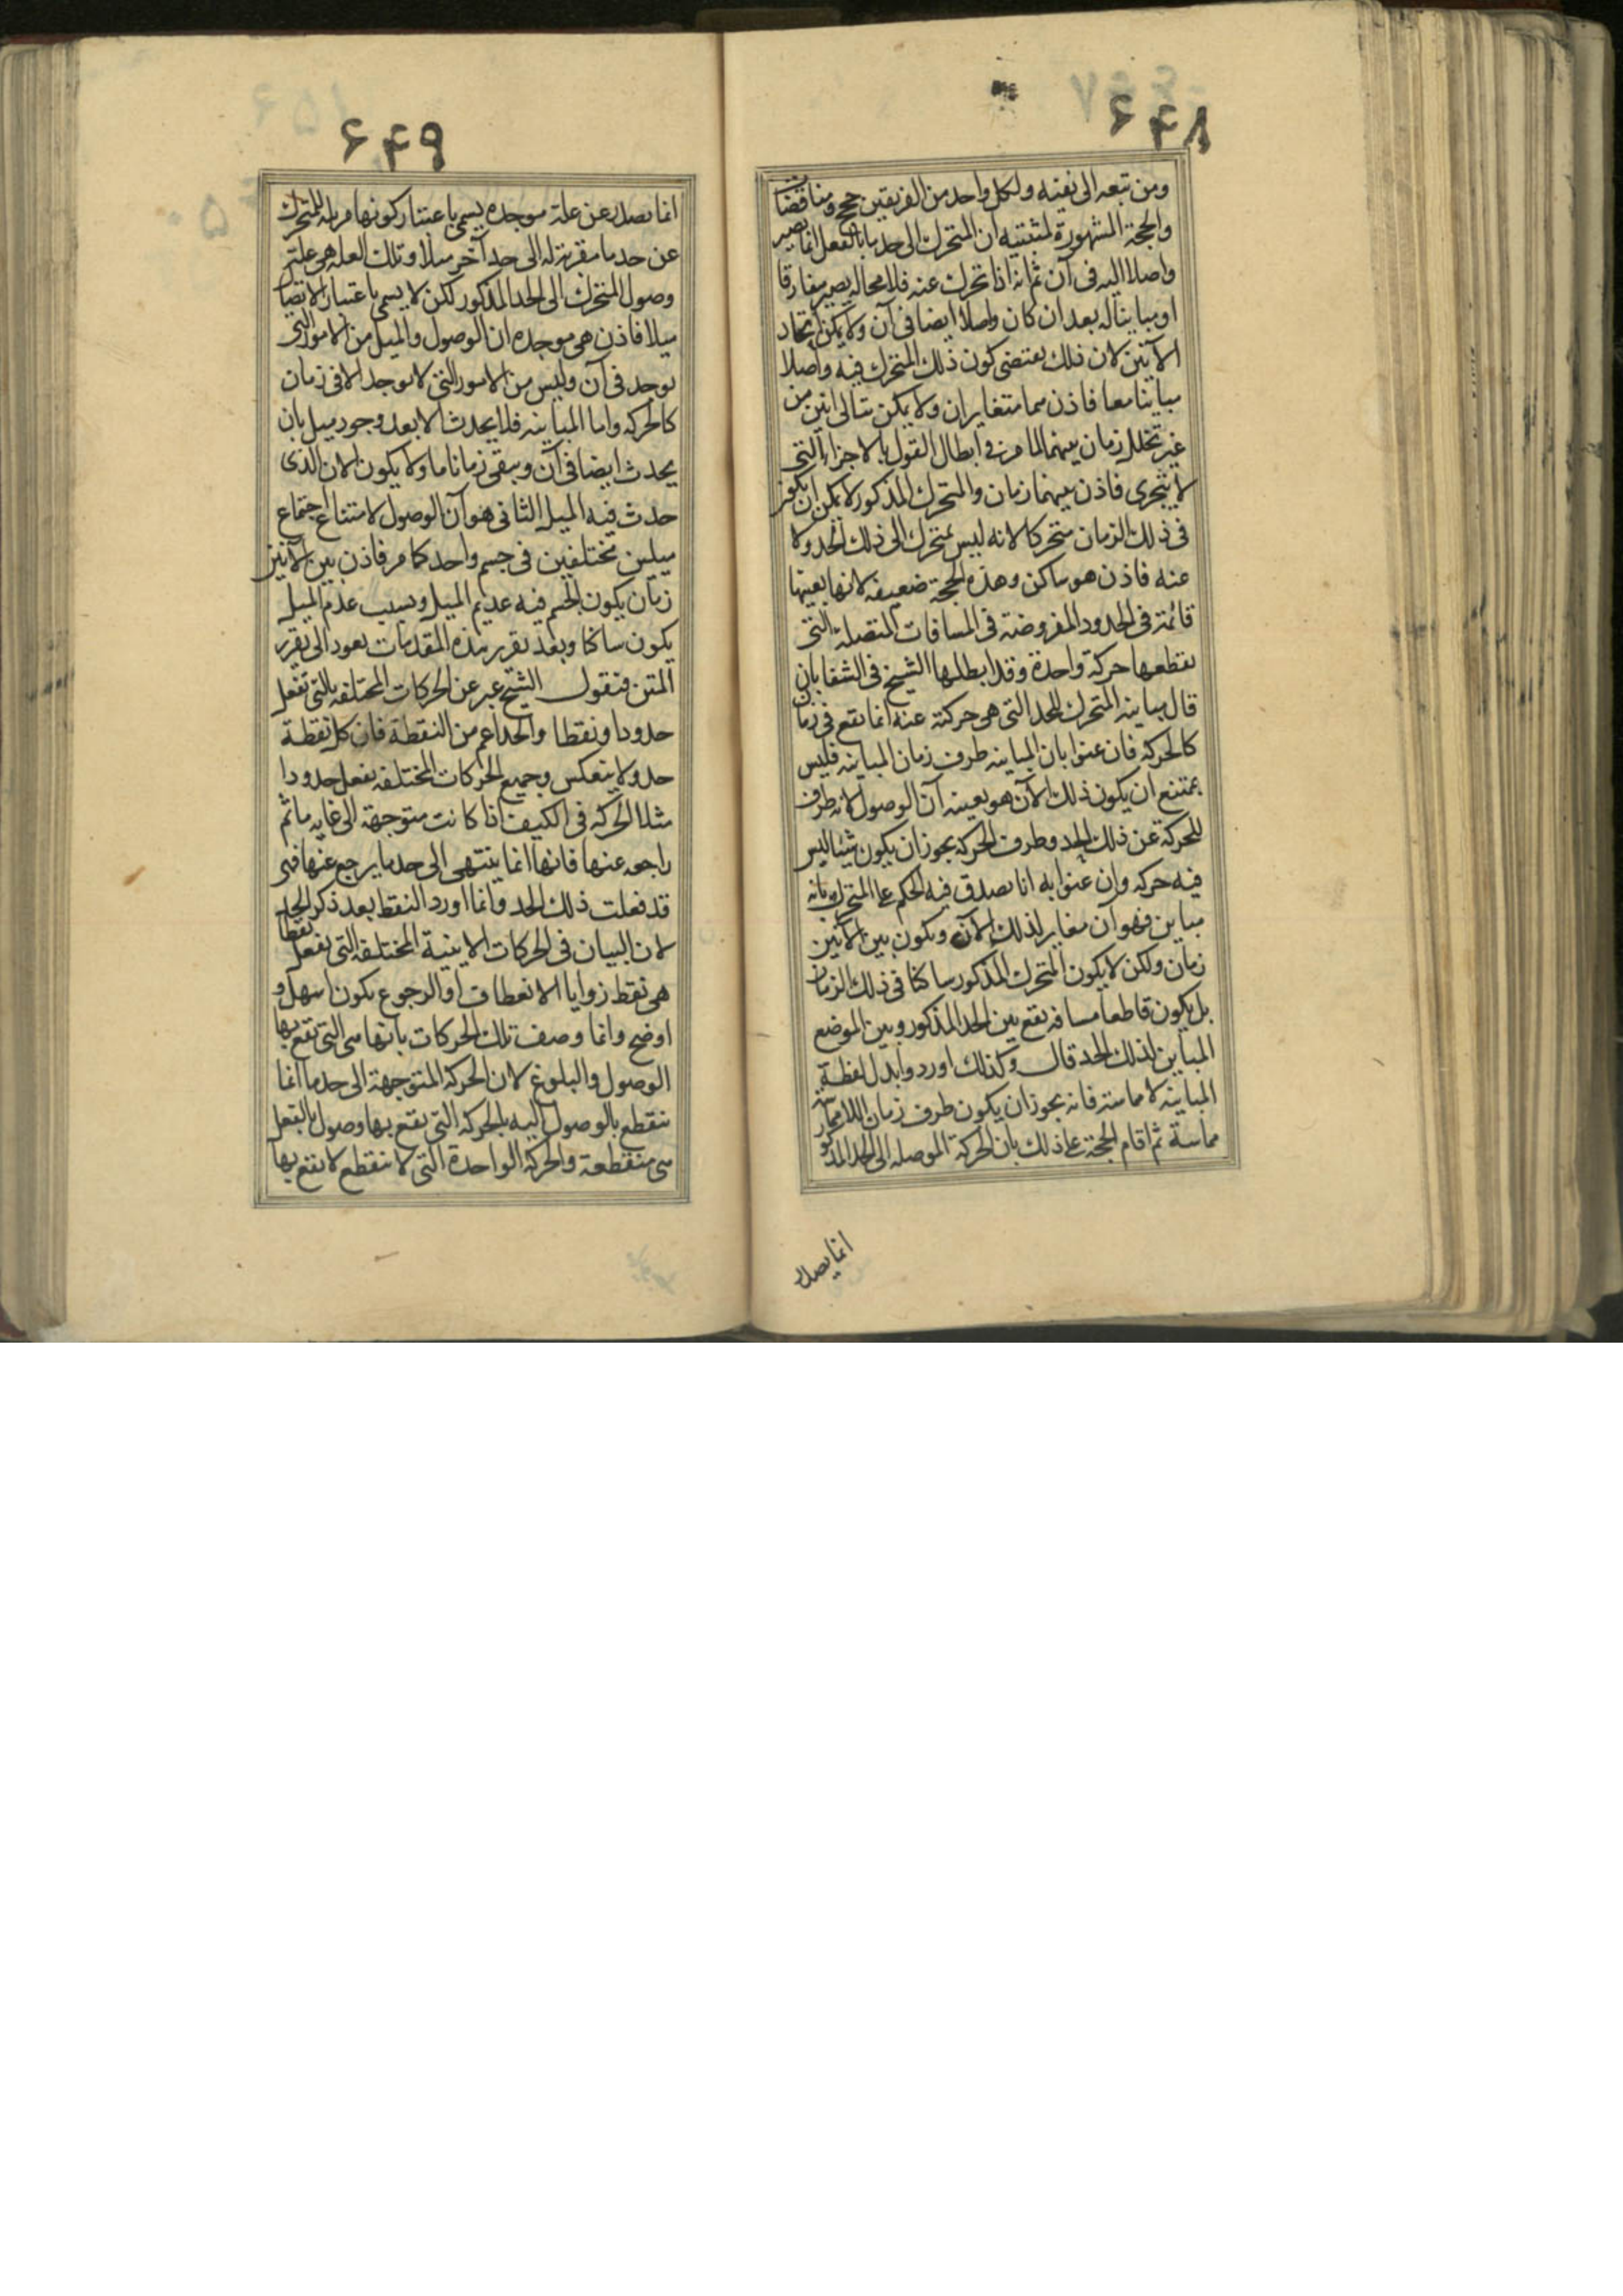 ۶۴۸
ومن تبعه الى نفيه ولكل واحد من الفريقين حجج ومناقضات
والحجة المشهورة لمثبتيه ان المتحرك الى حد ما بالفعل انما يصير
واصلا اليه فى آن ثم انه اذا تحرك عنه فلا محاله يصير مفارقا
او مباينا له بعد ان كان واصلا ايضا فى آن ولا يمكن اتحاد
الآنين لان ذلك يقتضى كون ذلك المتحرك فيه واصلا
مباينا معا فاذن هما متغايران ولا يمكن تتالى آنين من
غير تخلل زمان بينهما لما مر فى ابطال القول بالاجزاء التى
لا يتجزى فاذن بينهما زمان والمتحرك المذكور لا يمكن ان يكون
فى ذلك الزمان متحركا لانه ليس بمتحرك الى ذلك الحد ولا
عنه فاذن هو ساكن وهذه الحجة ضعيفه لانها بعينها
قائمة فى الحدود المفروضة فى المسافات المتصلة التى
يقطعها حركة واحدة وقد ابطلها الشيخ فى الشفا بان
قال مباينه المتحرك للحد التى هى حركته عنه انما يقع فى زمان
كالحركه فان عنوا بان المباينه طرف زمان المباينه فليس
بممتنع ان يكون ذلك الآن هو بعينه آن الوصول لانه طرف
للحركة عن ذلك الحد وطرف الحركه يجوز ان يكون شيئا ليس
فيه حركه وان عنوا به آنا يصدق فيه الحكم على المتحرك بانه
مباين فهو آن مغاير لذلك الآن ويكون بين الآنين
زمان ولكن لا يكون المتحرك المذكور ساكنا فى ذلك الزمان
بل يكون قاطعا مسافه يقع بين الحد المذكور وبين الموضع
المباين لذلك الحد قال وكذلك اورد وابدل لفظة
المباينه لامماسة فانه يجوز ان يكون طرف زمان اللامماسة
مماسة ثم اقام الحجة على ذلك بان الحركة الموصله الى الحد المذكور
انما يصدر
۶۴۹
انما يصدر عن علة موجده يسمى باعتبار كونها مزيله للمتحرك
عن حد ما مقربة له الى حد آخر ميلا وتلك العله هى علة
وصول المتحرك الى الحد المذكور لكن لا يسمى باعتبار الايصال
ميلا فاذن هى موجده ان الوصول والميل من الامور التى
توجد فى آن وليس من الامور التى لا توجد الا فى زمان
كالحركه واما المباينه فلا يحدث الا بعد وجود ميل بان
يحدث ايضا فى آن ويبقى زمانا ما ولا يكون الان الذى
حدث فيه الميل الثانى هو آن الوصول لامتناع اجتماع
ميلين مختلفين فى جسم واحد كما مر فاذن بين الآنين
زمان يكون الجسم فيه عديم الميل وبسبب عدم الميل
يكون ساكنا وبعد تقرير هذه المقدمات نعود الى تقرير
المتن فنقول الشيخ عبر عن الحركات المختلفه بالتى تفعل
حدودا ونقطا والحد اعم من النقطة فان كل نقطة
حد ولا ينعكس وجميع الحركات المختلفه يفعل حدودا
مثلا الحركه فى الكيف اذا كانت متوجهة الى غايه ما ثم
راجعه عنها فانها انما ينتهى الى حد ما يرجع عنها فهى
قد فعلت ذلك الحد وانما اورد النقط بعد ذكر الحد
لان البيان فى الحركات الاينية المختلفه التى يفعل نقطا
هى نقط زوايا الانعطاف او الرجوع يكون اسهل و
اوضح وانما وصف تلك الحركات بانها هى التى تقع بها
الوصول والبلوغ لان الحركه المتوجهة الى حد ما انما
ينقطع بالوصول اليه بالحركة التى يقع بها وصول بالفعل
هى منقطعة والحركة الواحدة التى لا ينقطع لا يقع بها